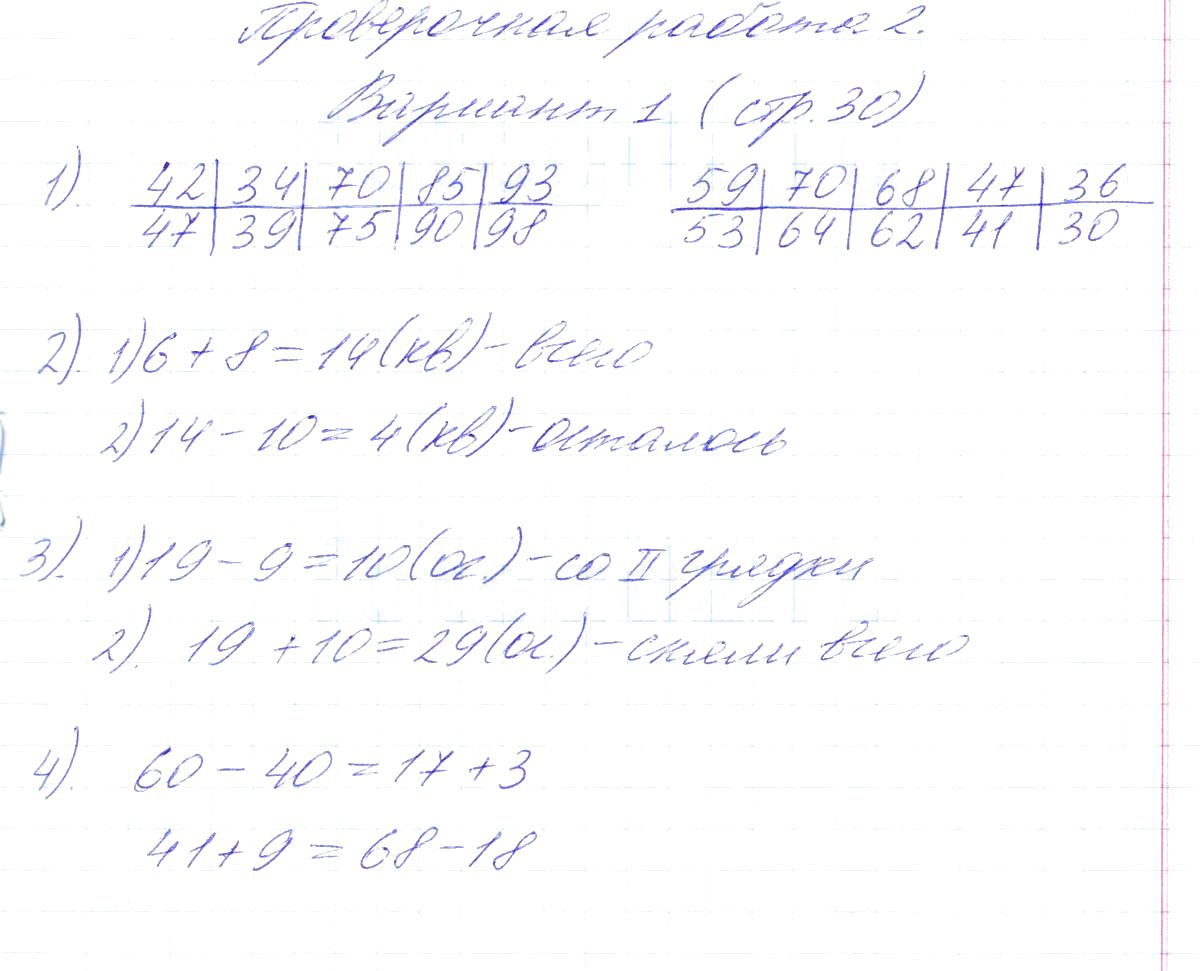 Проверочная работа 2.
Вариант 1 (стр. 30)
1). 42 | 34 | 70 | 85 | 93 59 | 70 | 68 | 47 | 36
47 | 39 | 75 | 90 | 98 53 | 64 | 62 | 41 | 30
2). 1) 6 + 8 = 14 (кв) - всего
2) 14 - 10 = 4 (кв) - осталось
3). 1) 19 - 9 = 10 (ог.) - со II грядки
2). 19 + 10 = 29 (ог.) - сняли всего
4). 60 - 40 = 17 + 3
41 + 9 = 68 - 18